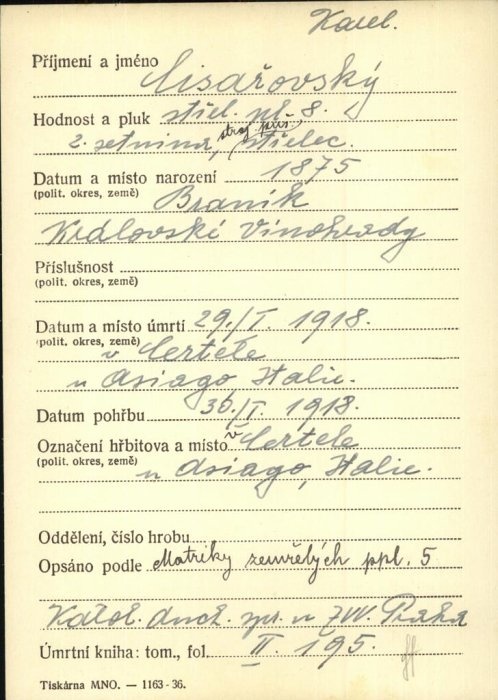 Karel.
Příjmení a jméno Cisařovský
Hodnost a pluk střel. pl. 8.
2. setnina, stroj. puš. střelec.
Datum a místo narození 1875
(polit. okres, země) Braník
Královské Vinohrady
Příslušnost
(polit. okres, země)
Datum a místo úmrtí 29./I. 1918.
(polit. okres, země) v Certele
u Asiago, Italie.
Datum pohřbu 30./I. 1918.
Označení hřbitova a místo v Certele
(polit. okres, země) u Asiago, Italie.
Oddělení, číslo hrobu
Opsáno podle Matriky zemřelých ppl. 5
Katol. duch. spr. u ZVV. Praha
Úmrtní kniha: tom., fol. II. 195.
Tiskárna MNO. — 1163-36.